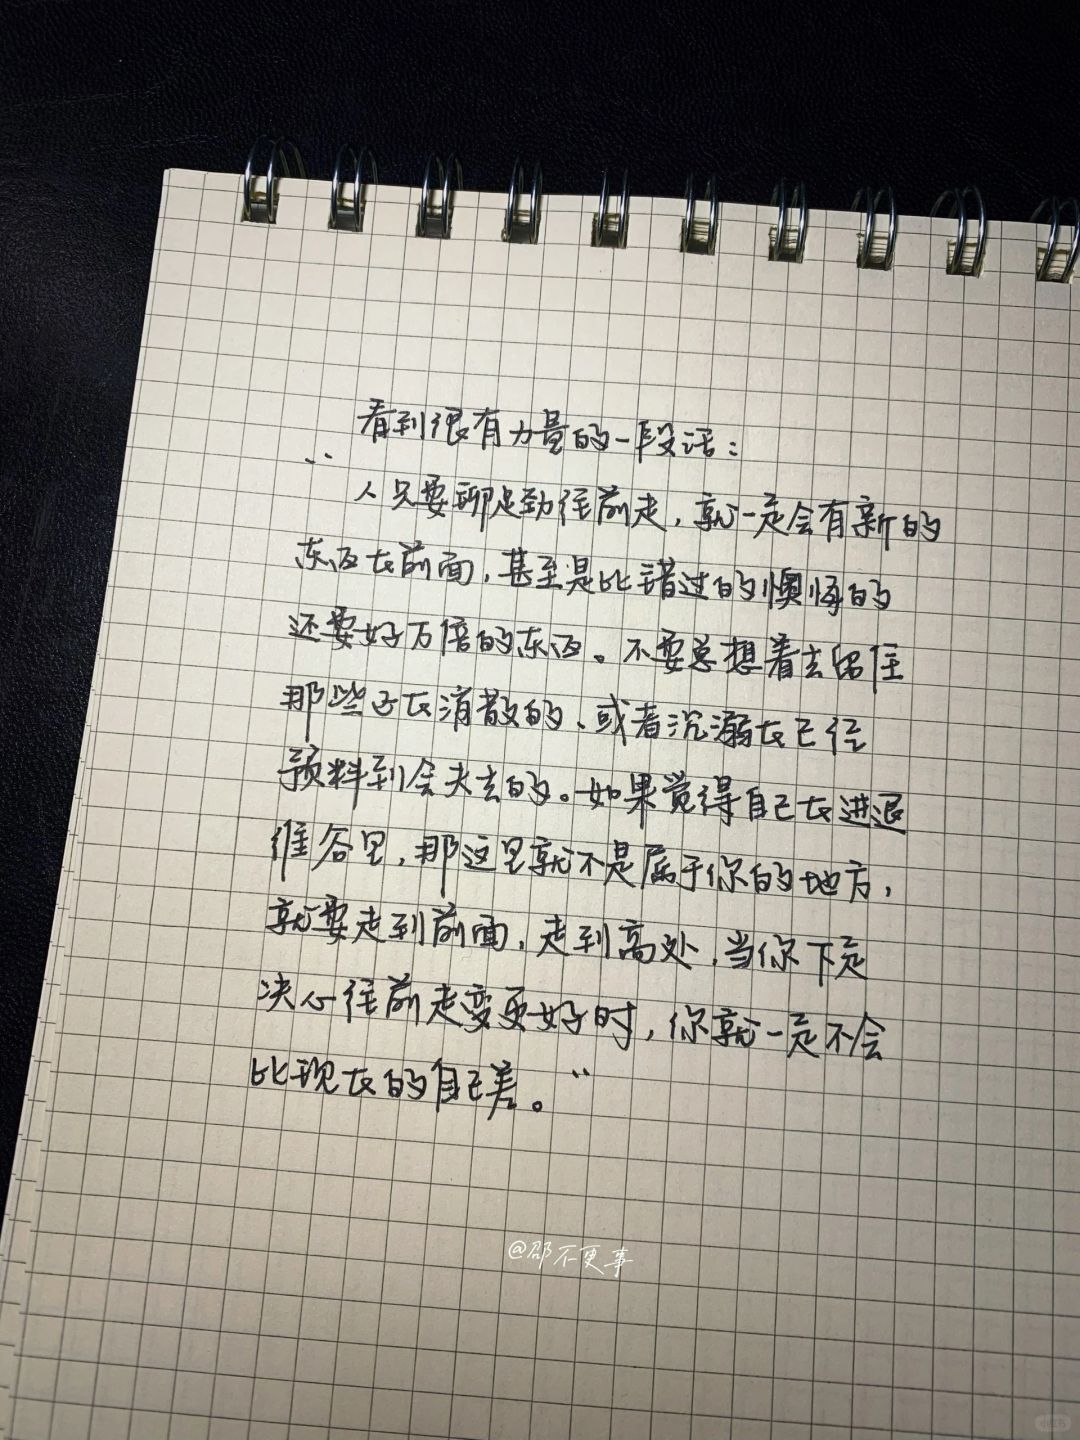 看到很有力量的一段话：
“人只要铆足劲往前走，就一定会有新的
东西在前面，甚至是比错过的懊悔的
还要好万倍的东西。不要总想着去留住
那些正在消散的、或者沉溺在已经
预料到会失去的。如果觉得自己在进退
维谷里，那这里就不是属于你的地方，
就要走到前面，走到高处，当你下定
决心往前走变更好时，你就一定不会
比现在的自己差。”
@邵不更事